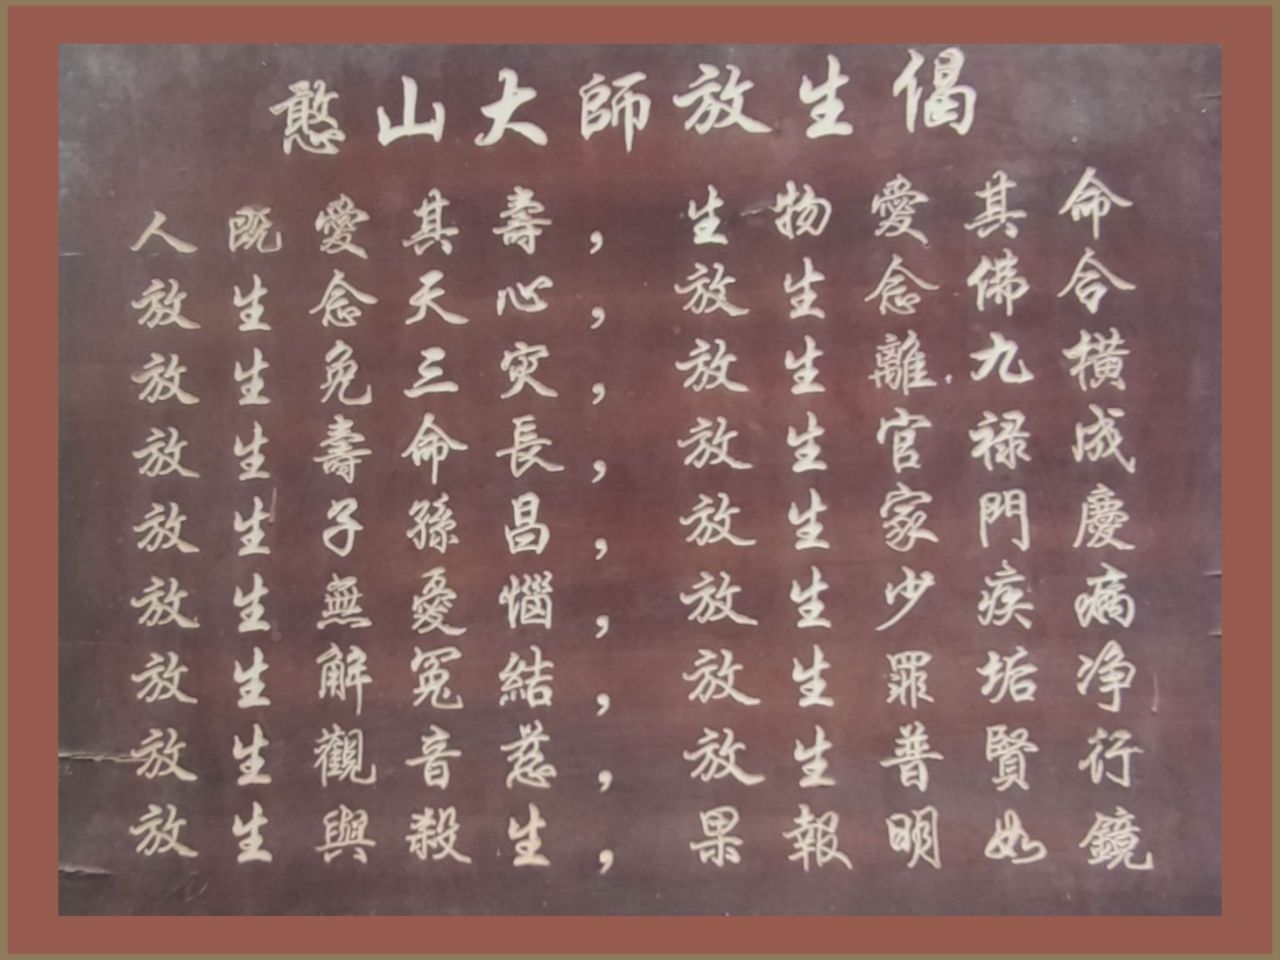 憨山大師放生偈
人既愛其壽，生物愛其命
放生念天心，放生念佛合
放生免三灾，放生離九橫
放生壽命長，放生官禄成
放生子孫昌，放生家門慶
放生無憂惱，放生少疾病
放生解冤結，放生罪垢净
放生觀音慈，放生普賢行
放生與殺生，果報明如鏡